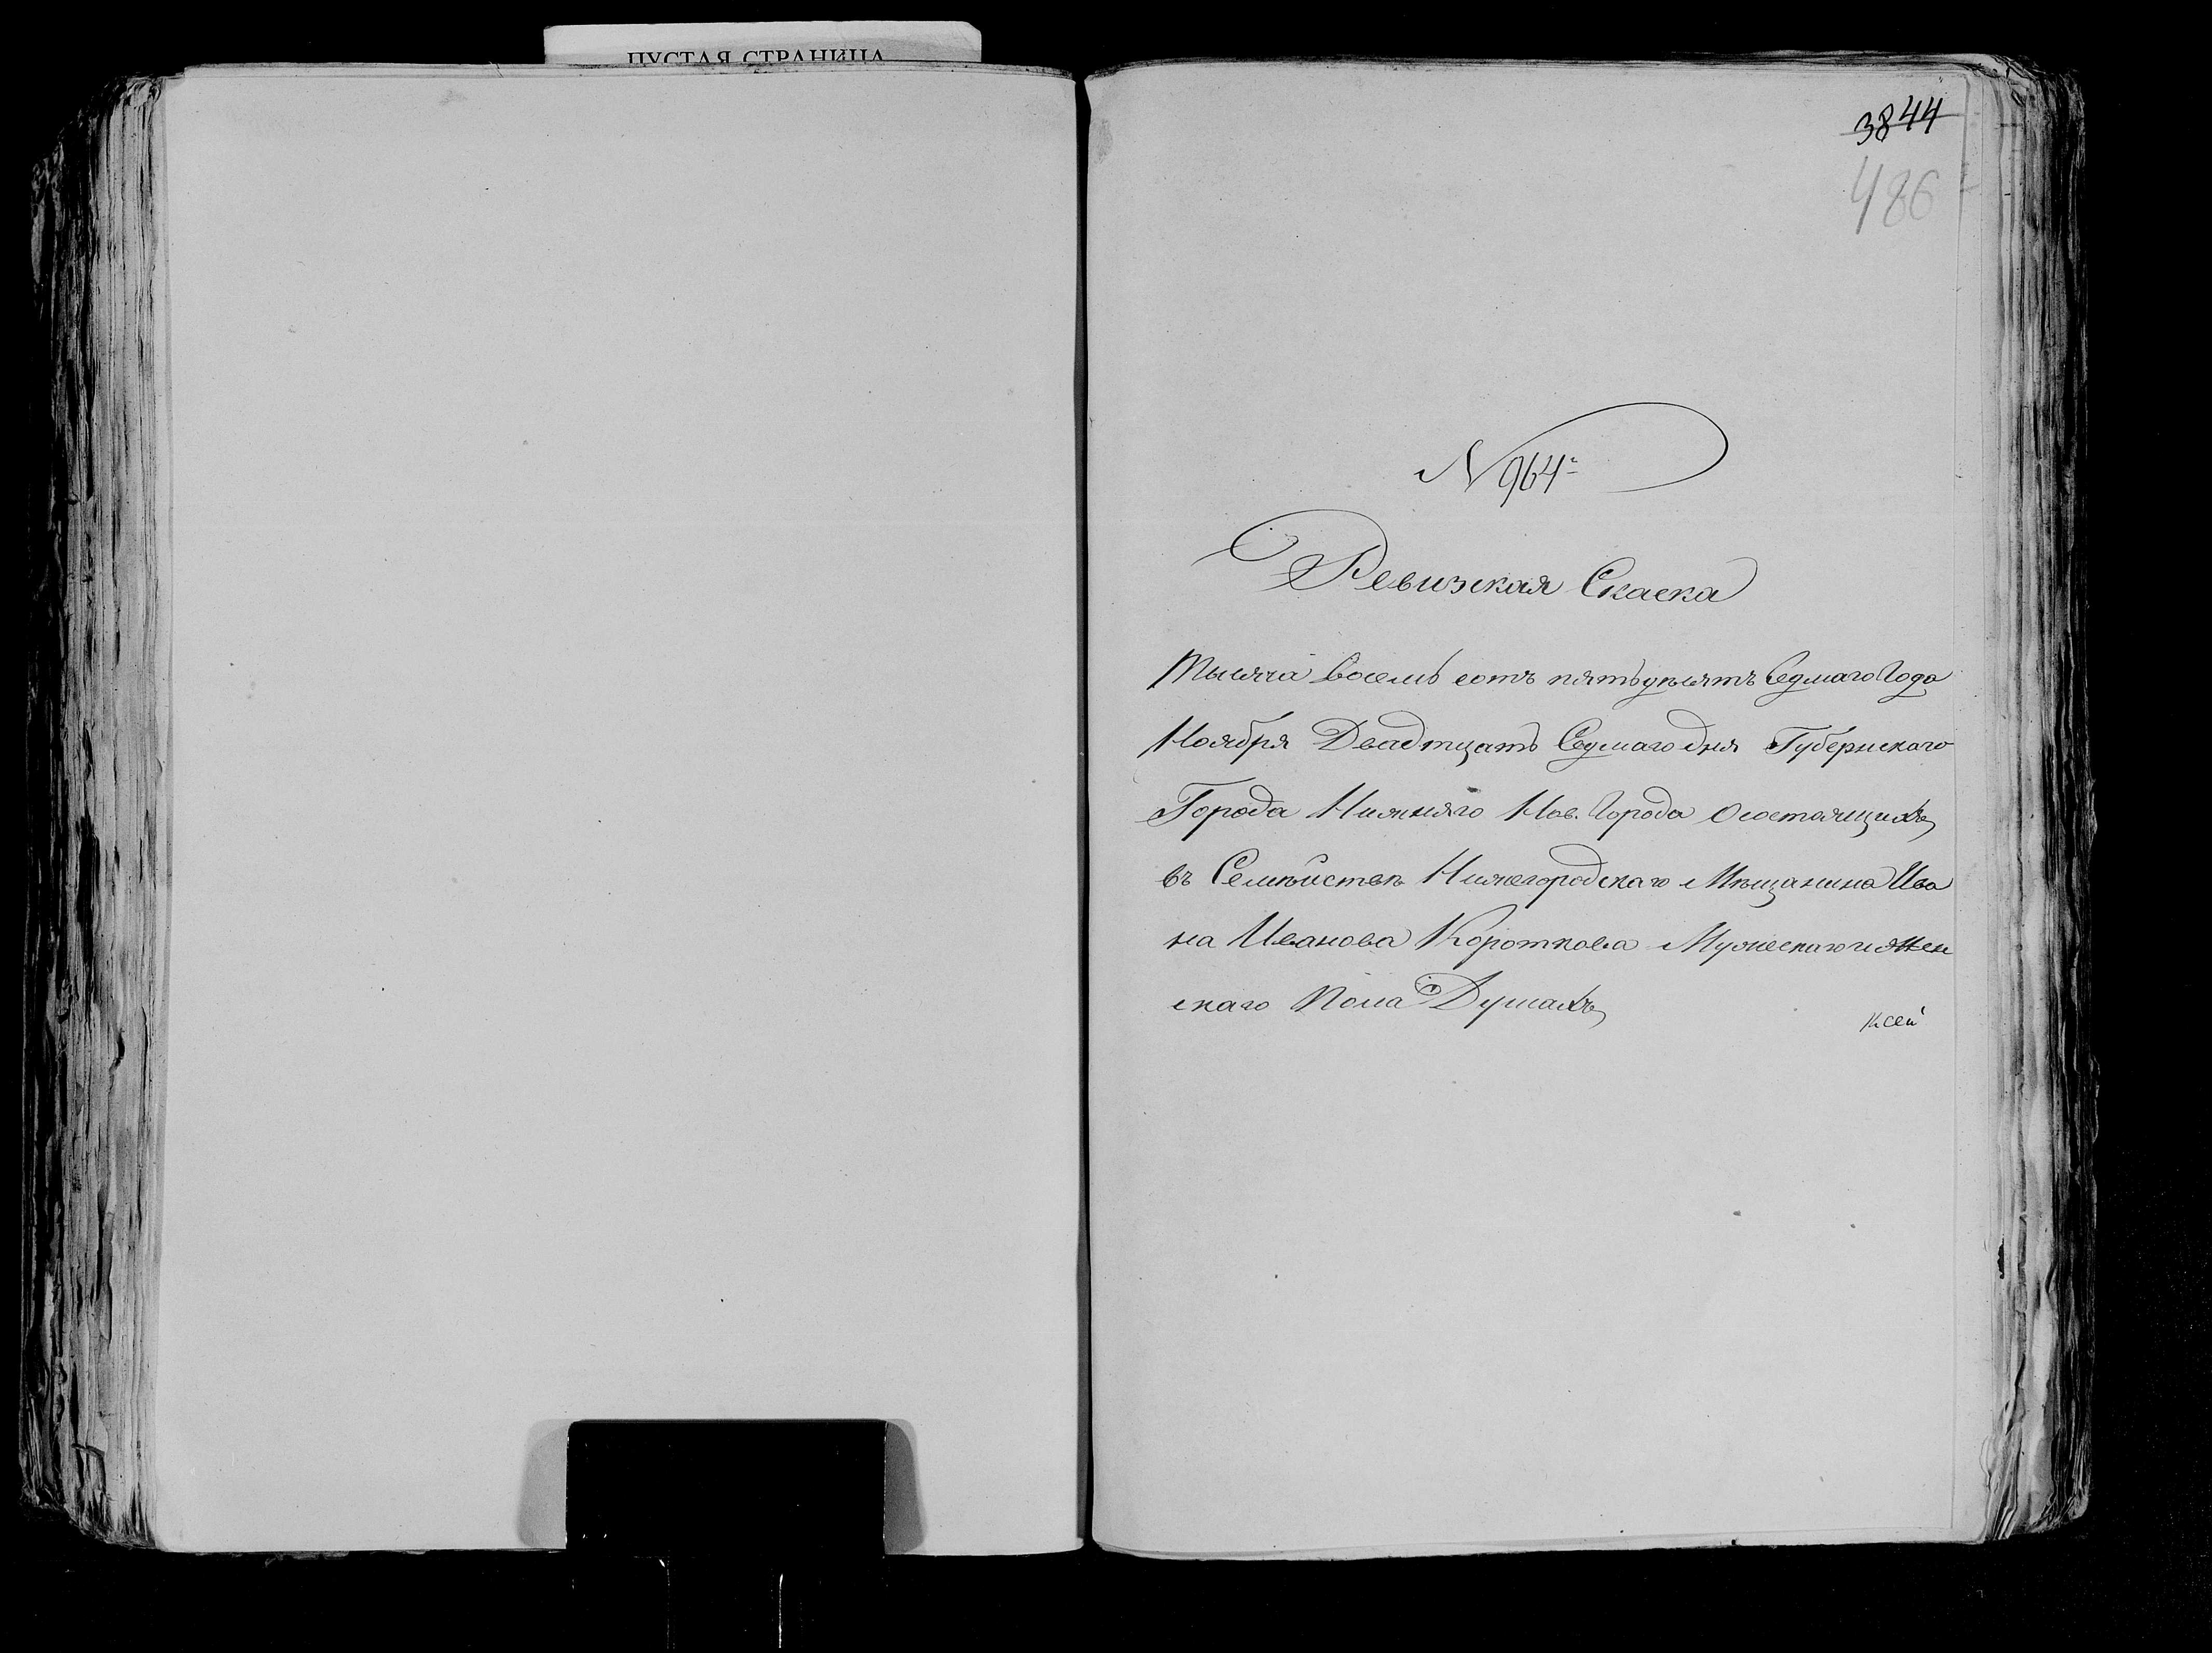 ПУСТАЯ СТРАНИЦА
3844
486
N 964
Ревизская Скаска
Тысяча восемь сотъ пятьдесятъ Седмаго Года
Ноября Двадтцать Седмаго дня Губернскаго
Города Нижняго Нов. Города о состоящихъ
въ Семѣйствѣ Нижегородскаго Мѣщанина Ива
на Иванова Короткова Мужескаго и жен
скаго Пола Душахъ
к сей